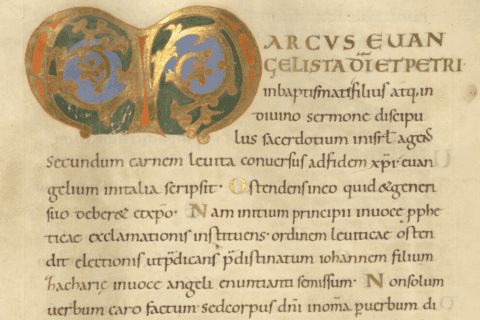 MARCVS EVAN
GELISTA DI ET PETRI
inbaptismate filius atq; in
diuino sermone discipu
lus sacerdotium inisrl agens
Secundum carnem leuita conuersus adfidem xpi euan
gelium initalia scripsit · Ostendens ineo quid & generi
suo deber& & xpo · Nam initium principii inuoce pphe
ticae exclamationis instituens · ordinem leuiticae osten
dit electionis ut pdicans pdistinatum iohannem filium
zhachariae inuoce angeli enuntiantis emissum · Nonsolum
uerbum caro factum sed corpus dni inoma p uerbum di